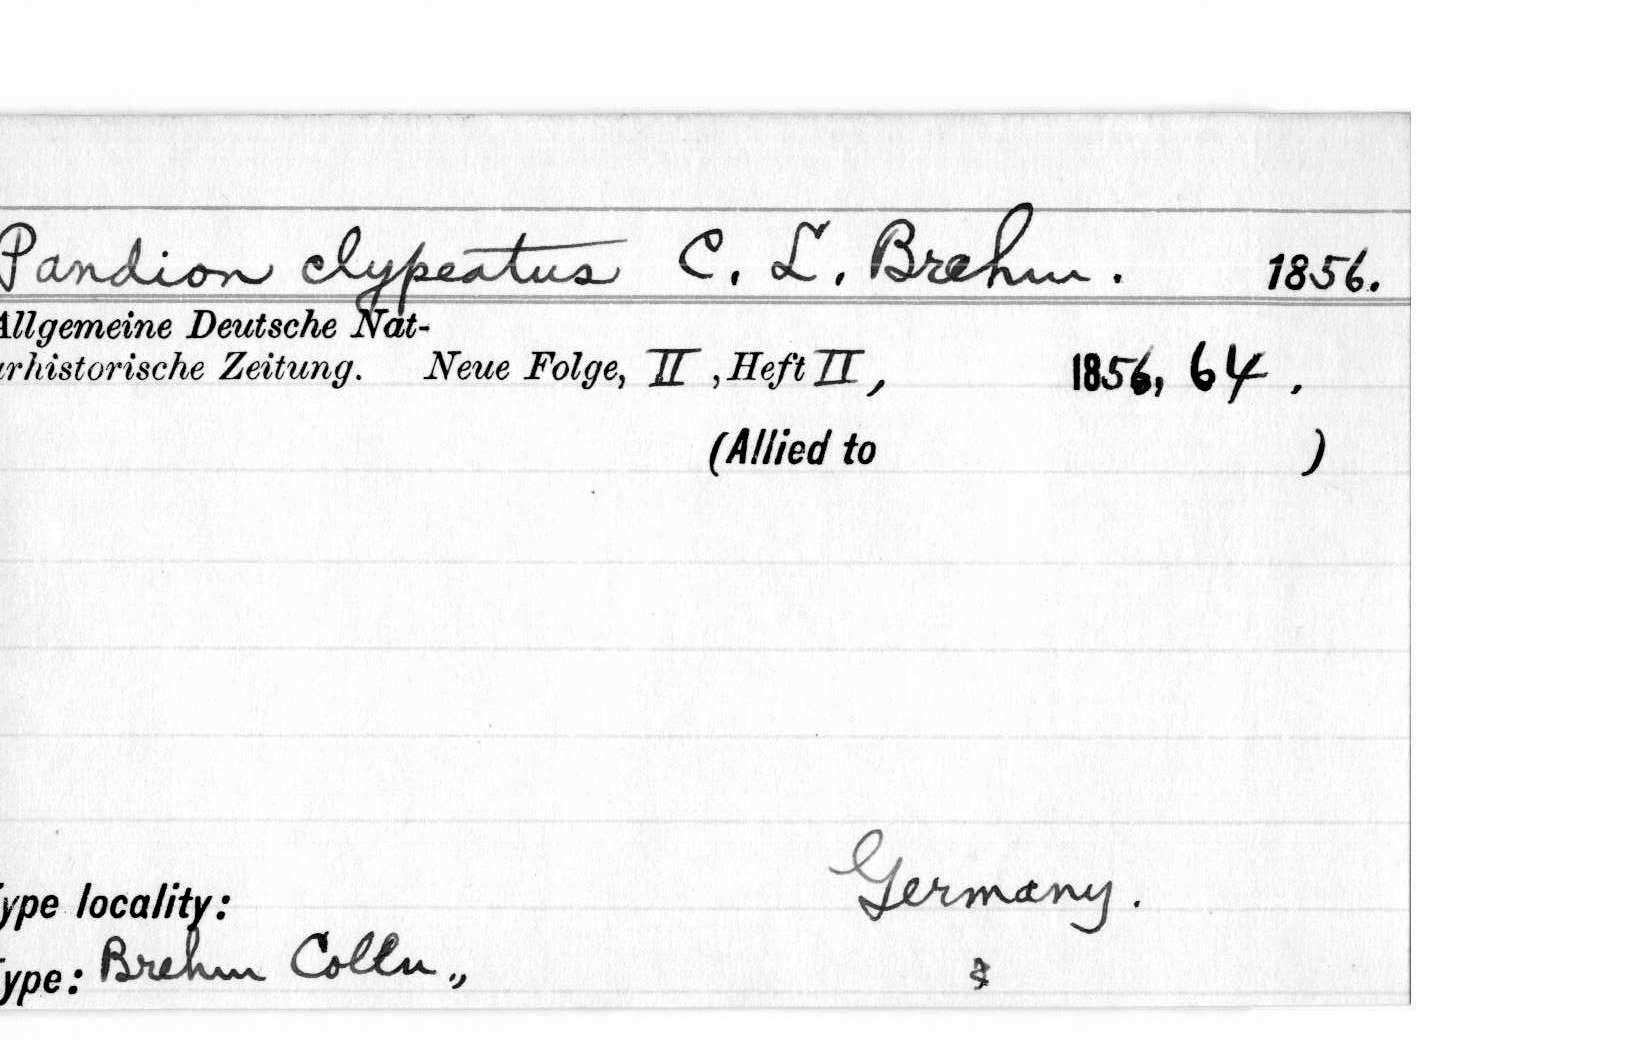 Pandion clypeatus C. L. Brehm. 1856.
Allgemeine Deutsche Nat-
urhistorische Zeitung. Neue Folge, II, Heft II, 1856, 64.
(Allied to )
Type locality: Germany.
Type: Brehm Colln.,